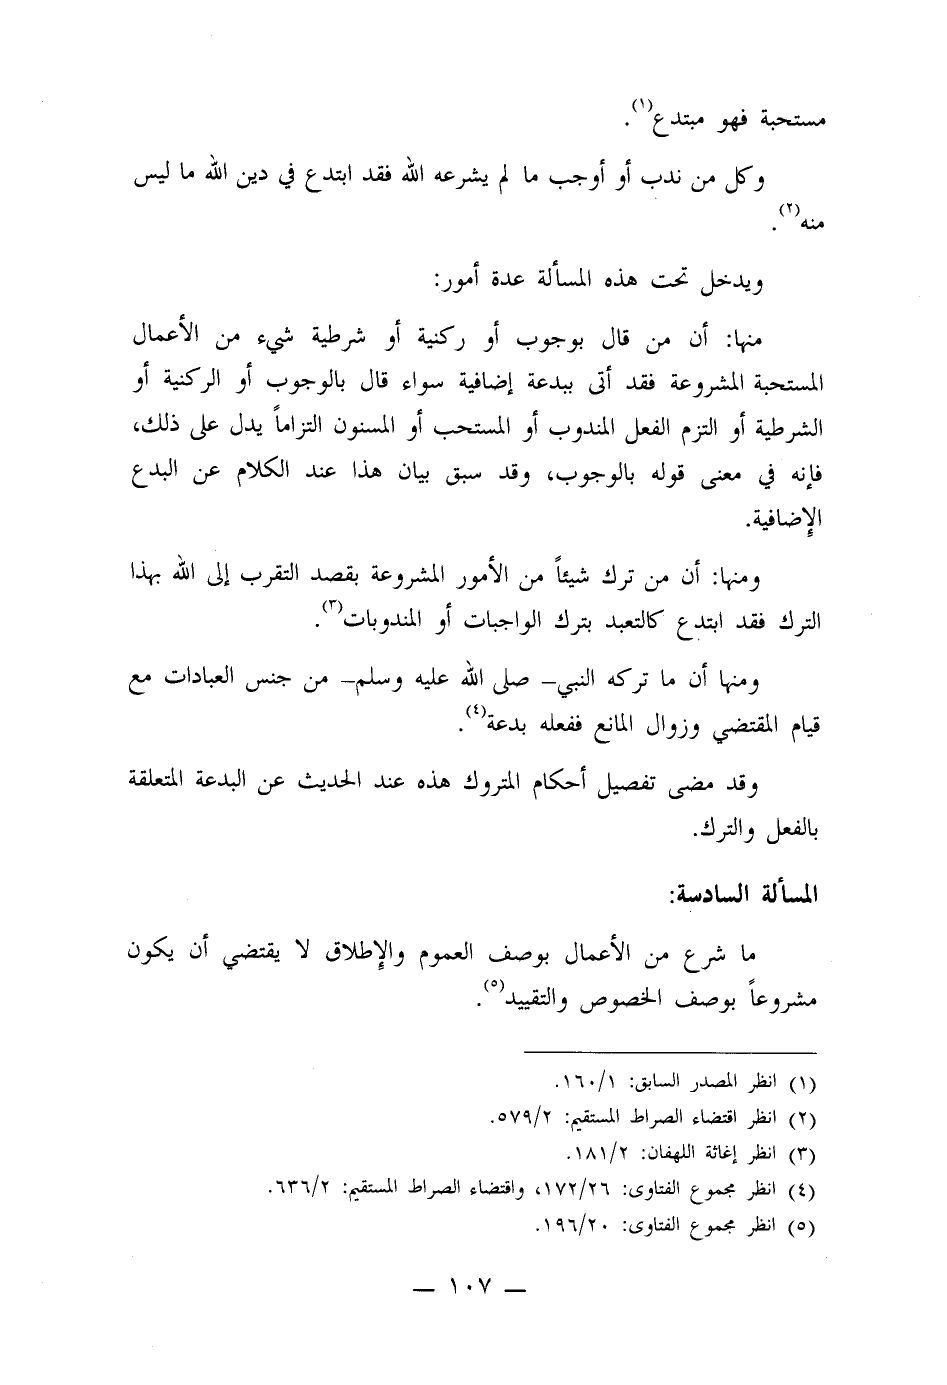 مستحبة فهو مبتدع(١).
وكل من ندب أو أوجب ما لم يشرعه الله فقد ابتدع في دين الله ما ليس
منه(٢).
ويدخل تحت هذه المسألة عدة أمور:
منها: أن من قال بوجوب أو ركنية أو شرطية شيء من الأعمال
المستحبة المشروعة فقد أتى ببدعة إضافية سواء قال بالوجوب أو الركنية أو
الشرطية أو التزم الفعل المندوب أو المستحب أو المسنون التزاماً يدل على ذلك،
فإنه في معنى قوله بالوجوب، وقد سبق بيان هذا عند الكلام عن البدع
الإضافية.
ومنها: أن من ترك شيئاً من الأمور المشروعة بقصد التقرب إلى الله بهذا
الترك فقد ابتدع كالتعبد بترك الواجبات أو المندوبات(٣).
ومنها أن ما تركه النبي ــ صلى الله عليه وسلم ــ من جنس العبادات مع
قيام المقتضي وزوال المانع ففعله بدعة(٤).
وقد مضى تفصيل أحكام المتروك هذه عند الحديث عن البدعة المتعلقة
بالفعل والترك.
المسألة السادسة:
ما شرع من الأعمال بوصف العموم والإطلاق لا يقتضي أن يكون
مشروعاً بوصف الخصوص والتقييد(٥).
(١) انظر المصدر السابق: ١٦٠/١.
(٢) انظر اقتضاء الصراط المستقيم: ٥٧٩/٢.
(٣) انظر إغاثة اللهفان: ١٨١/٢.
(٤) انظر مجموع الفتاوى: ١٧٢/٢٦، واقتضاء الصراط المستقيم: ٦٣٦/٢.
(٥) انظر مجموع الفتاوى: ١٩٦/٢٠.
— ١٠٧ —